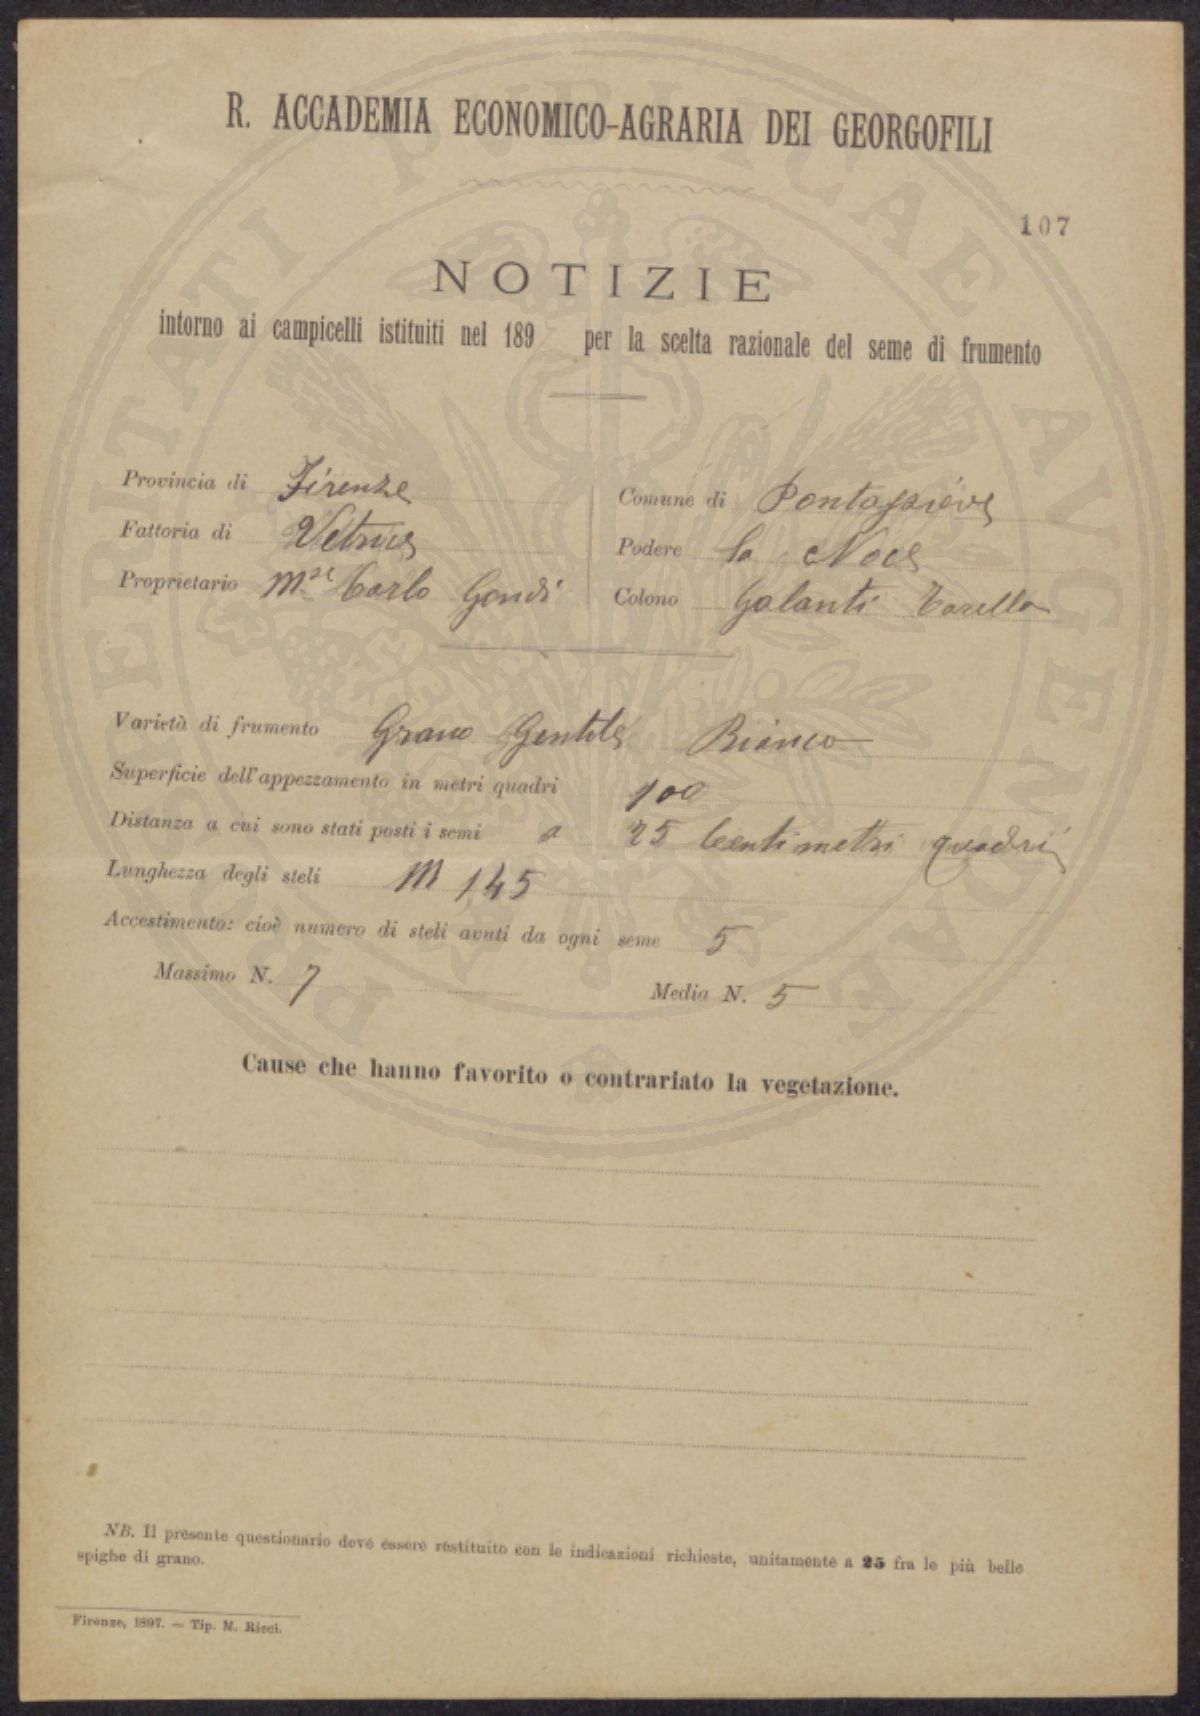 R. ACCADEMIA ECONOMICO-AGRARIA DEI GEORGOFILI
107
NOTIZIE
intorno ai campicelli istituiti nel 189 per la scelta razionale del seme di frumento
Provincia di Firenze
Comune di Pontassieve
Fattoria di
Podere la Noce
Proprietario Mse Carlo Gondi
Colono Galanti
Varietà di frumento Grano Gentile Bianco
Superficie dell'appezzamento in metri quadri 100
Distanza a cui sono stati posti i semi a 25 Centimetri quadri
Lunghezza degli steli M 1,45
Accestimento: cioè numero di steli avuti da ogni seme 5
Massimo N. 7
Media N. 5
Cause che hanno favorito o contrariato la vegetazione.
NB. Il presente questionario deve essere restituito con le indicazioni richieste, unitamente a 25 fra le più belle
spighe di grano.
Firenze, 1897. — Tip. M. Ricci.
PROSPERITATI PUBLICAE AUGENDAE